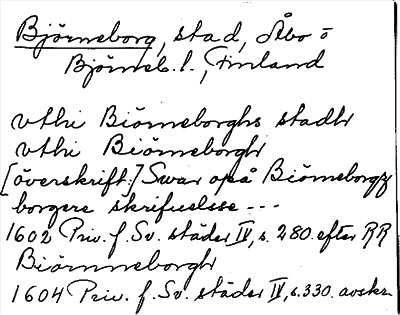 Björneborg, stad, Åbo o
Björneb. l., Finland
vthi Biörneborghs stadh
vthi Biörneborgh
[överskrift:] Swar opå Biörneborgz
borgere skrifuelsse ---
1602 Priv. f. Sv. städer IV, s. 280. efter RR
Biörnneborgh
1604 Priv. f. Sv. städer IV, s. 330. avskr.